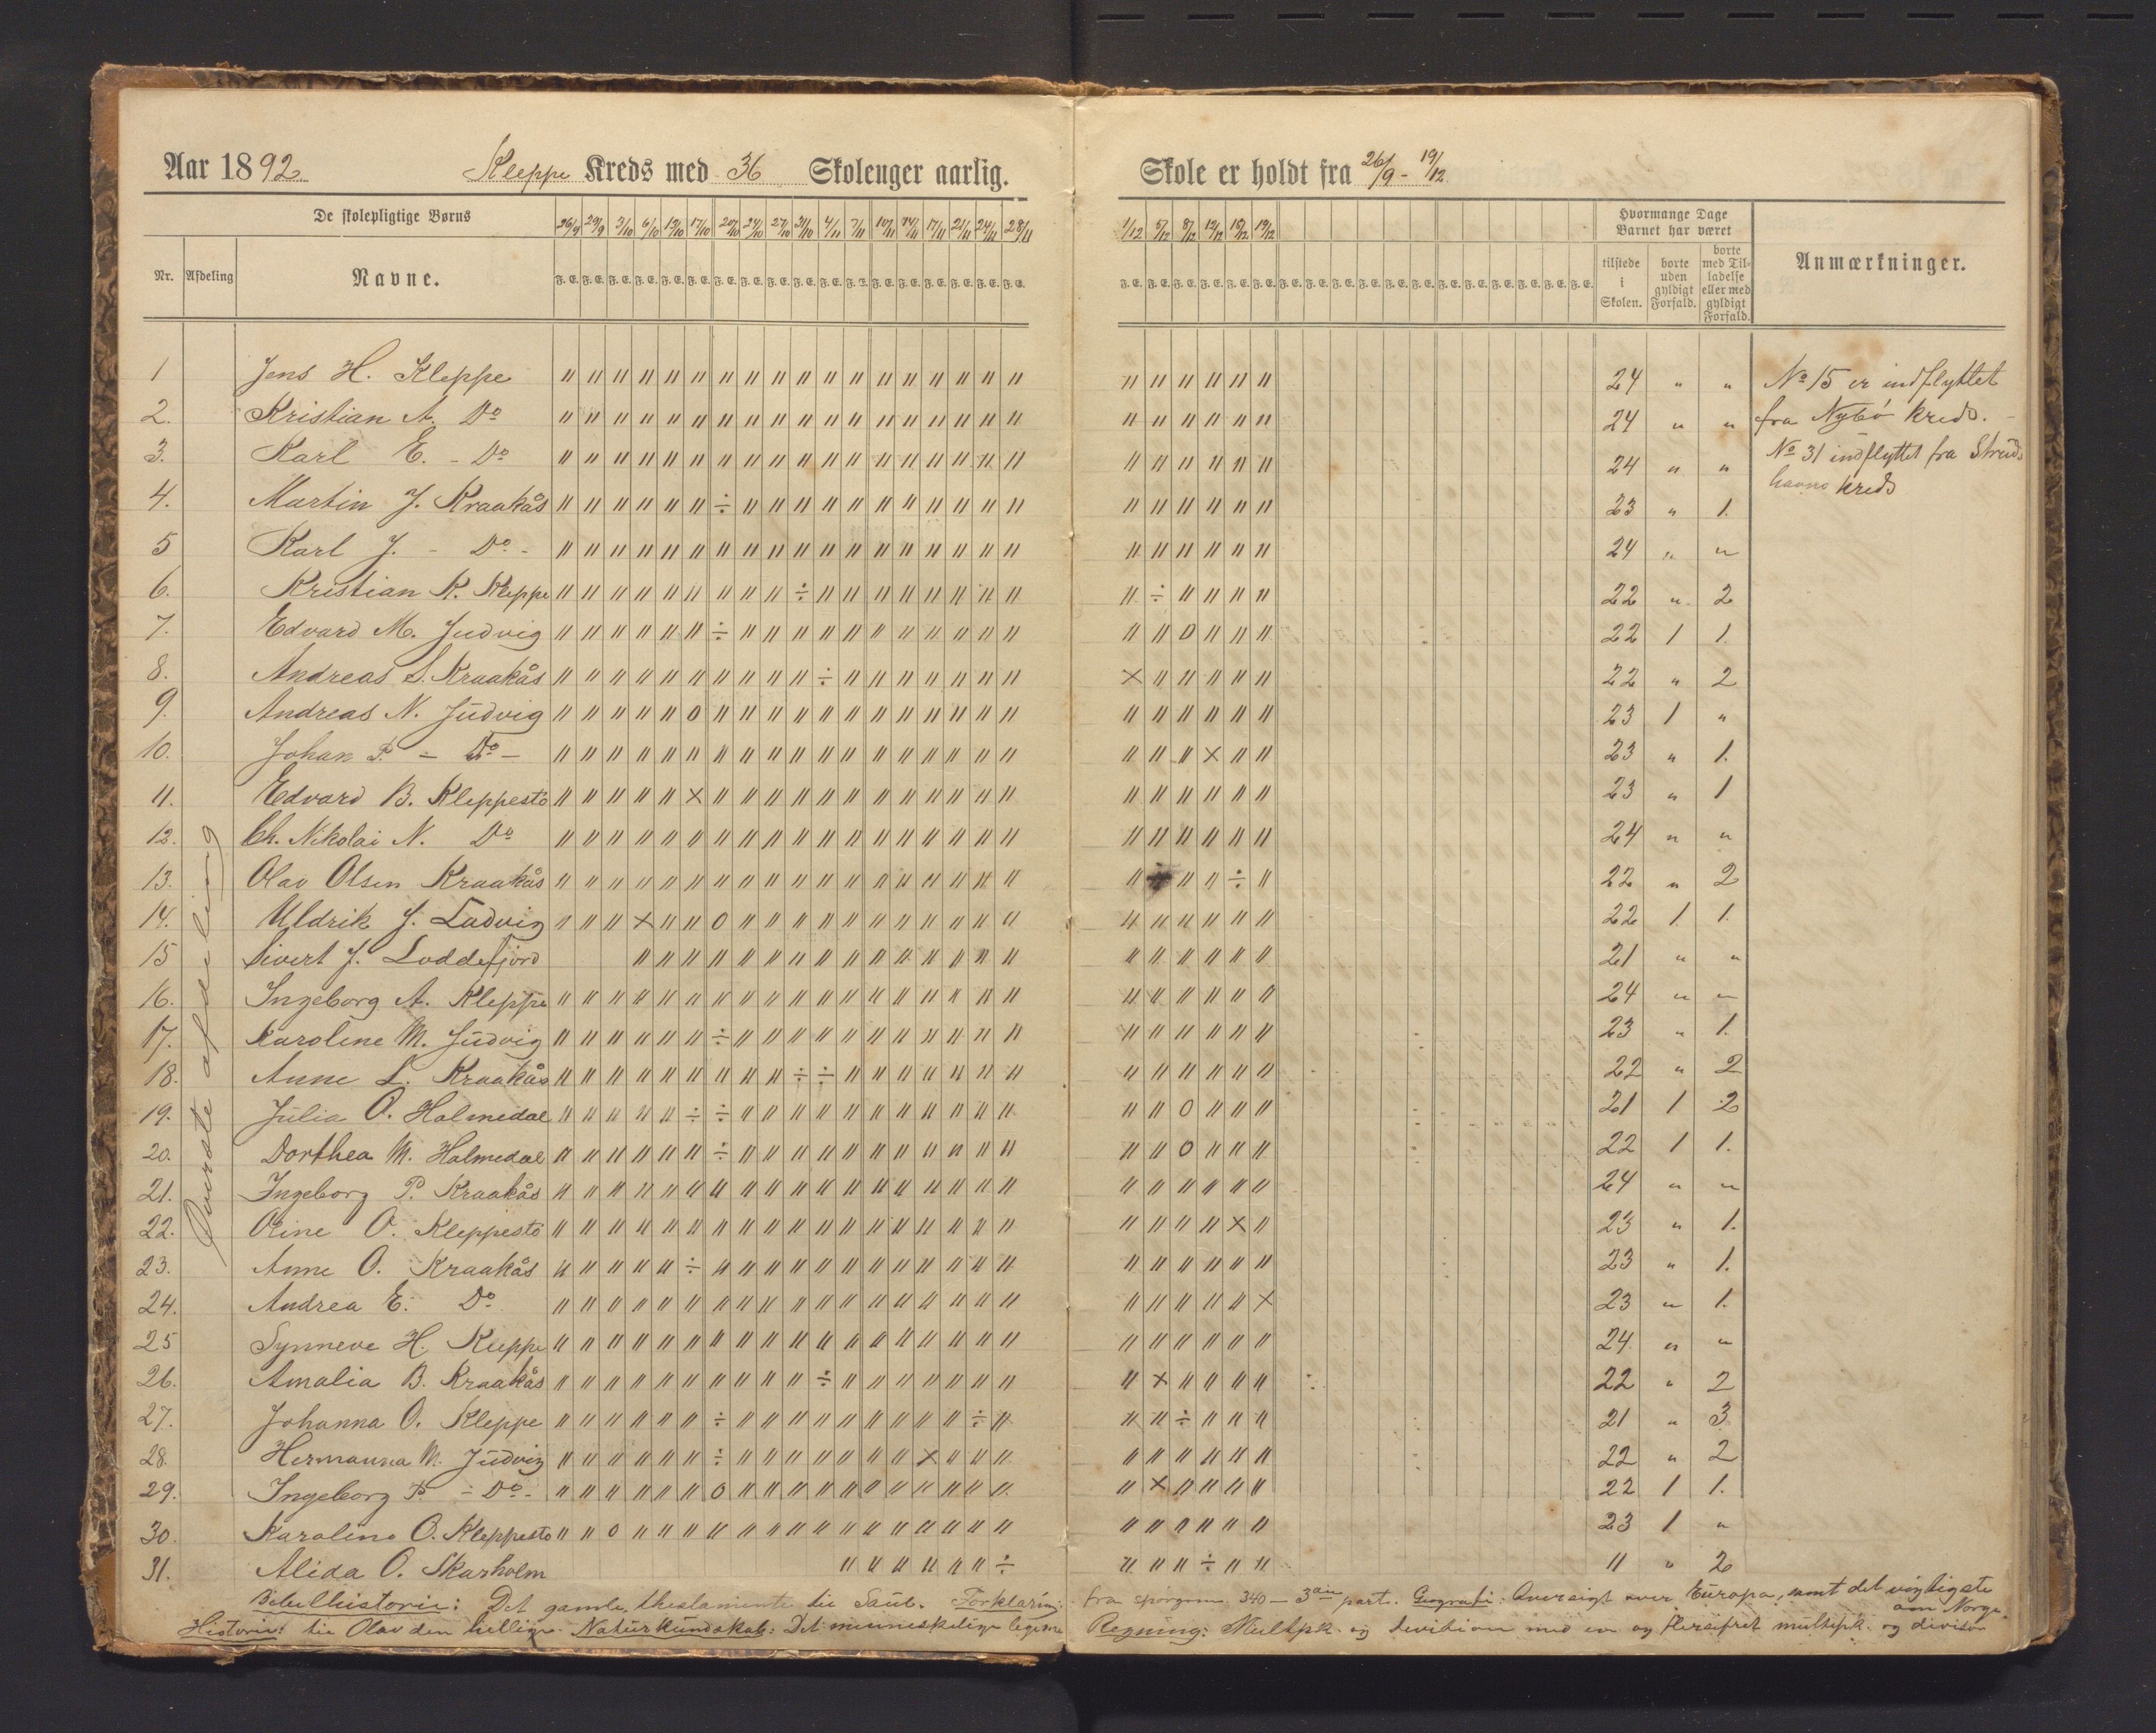 Aar 1892. Kleppe Kreds med 36 Skoleuger aarlig. Skole er holdt fra 26/9 - 19/12.
De skolepligtige Børns 26/9 29/9 3/10 6/10 13/10 17/10 20/10 24/10 27/10 31/10 4/11 7/11 10/11 14/11 17/11 21/11 24/11 28/11 1/12 5/12 8/12 12/12 15/12 19/12 Hvormange Dage Barnet har været
Nr. Afdeling Navne. F. E. tilstede i Skolen. borte uden gyldigt Forfald. borte med Tilladelse eller med gyldigt Forfald. Anmærkninger.
Øverste afdeling
1 Jens H. Kleppe 24 " " No 15 er indflyttet
2. Kristian A. Do 24 " " fra Nybö kreds.
3. Karl E. - Do 24 " " No 31 indflyttet fra Struds
4. Martin J. Kraakås 23 " 1. havns kreds
5 Karl J. - Do - 24 " "
6. Kristian K. Kleppe 22 " 2
7. Edvard M. Judvig 22 1 1.
8. Andreas L. Kraakås 22 " 2
9. Andreas N. Judvig 23 1 "
10. Johan P. - Do - 23 " 1.
11. Edvard B. Kleppestö 23 " 1
12. Ch. Nikolai N. Do 24 " "
13. Olav Olsen Kraakås 22 " 2
14. Uldrik J. Ludvig 22 1. 1.
15 Sivert J. Loddefjord 21 " "
16. Ingeborg A. Kleppe 24 " "
17. Karoline M. Judvig 23 " 1.
18. Anne L. Kraakås 22 " 2
19. Julia O. Holmedal 21 1 2
20. Dorthea M. Holmedal 22 1 1.
21. Ingeborg P. Kraakås 24 " "
22. Oline O. Kleppestö 23 " 1.
23. Anne O. Kraakås 23 " 1.
24. Andrea E. Do 23 " 1.
25 Synneve H. Kleppe 24 " "
26. Amalia B. Kraakås 22 " 2
27. Johanna O. Kleppe 21 " 3
28. Hermanna M. Judvig 22 " 2
29. Ingeborg P. - Do - 22 1 1.
30. Karoline O. Kleppestö 23 1 "
31. Alida O. Skarholm 11 " 2
Bibelhistorie: Det gamle thestamente til Saul. Forklaring: fra spørgsm 340 - 3die part. Geografi: Oversigt over Europa, samt det vigtigste om Norge.
Historie: til Olav den hellige. Naturkundskab: Det menneskelige legeme Regning: Multpk. og division med en og flersifret multipk. og divisor